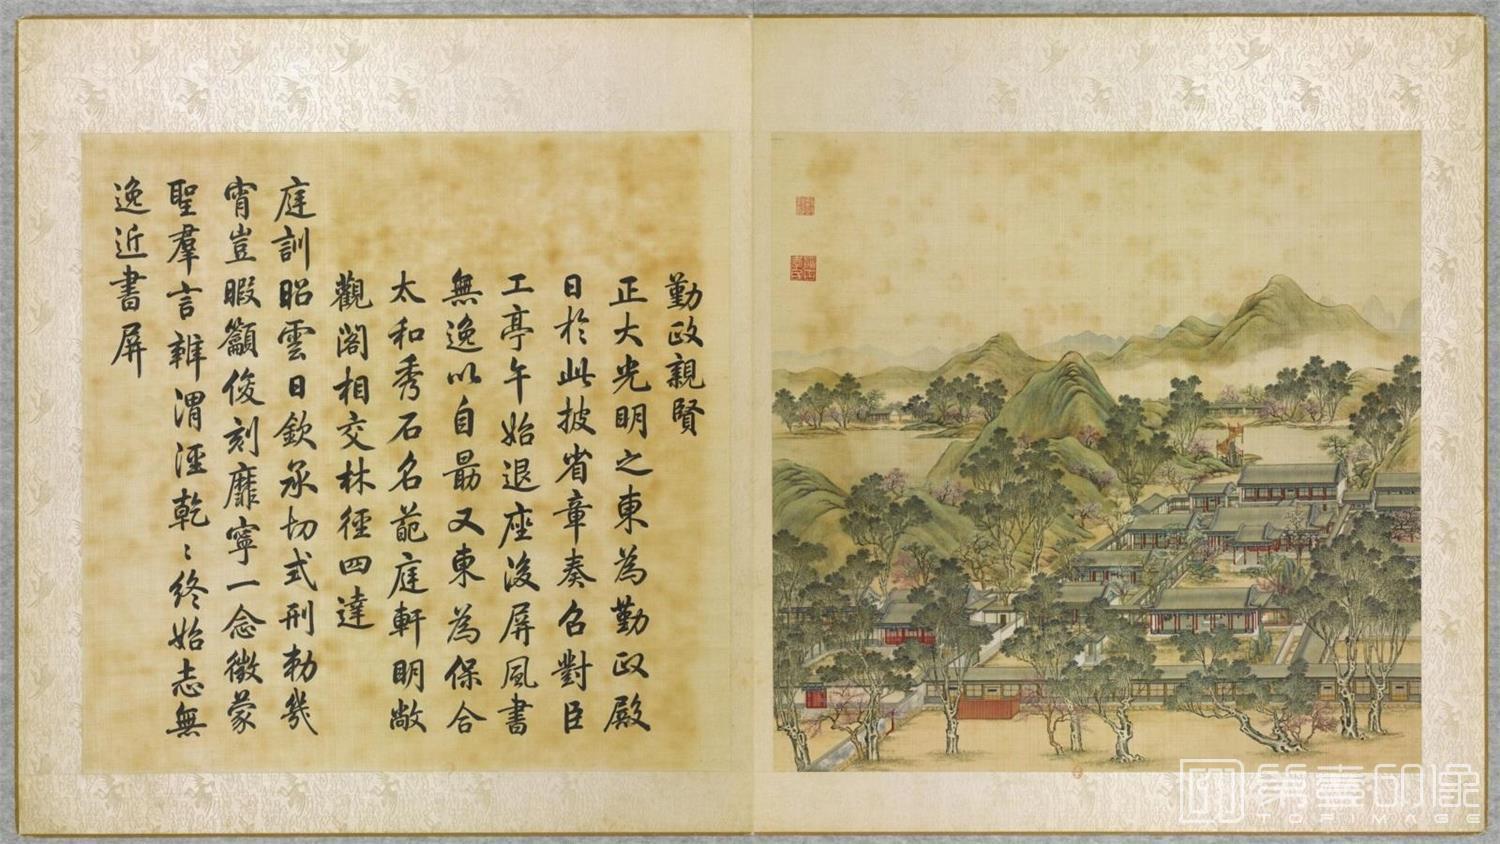 勤政親賢
正大光明之東為勤政殿
日於此披省章奏召對臣
工亭午始退座後屏風書
無逸以自勗又東為保合
太和秀石名葩庭軒明敞
觀閣相交林徑四達
庭訓昭雲日欽承切式刑勑幾
宵豈暇籲俊刻靡寧一念徵蒙
聖羣言辨渭涇乾〻終始志無
逸近書屏
第壹印像
TOPIMAGE